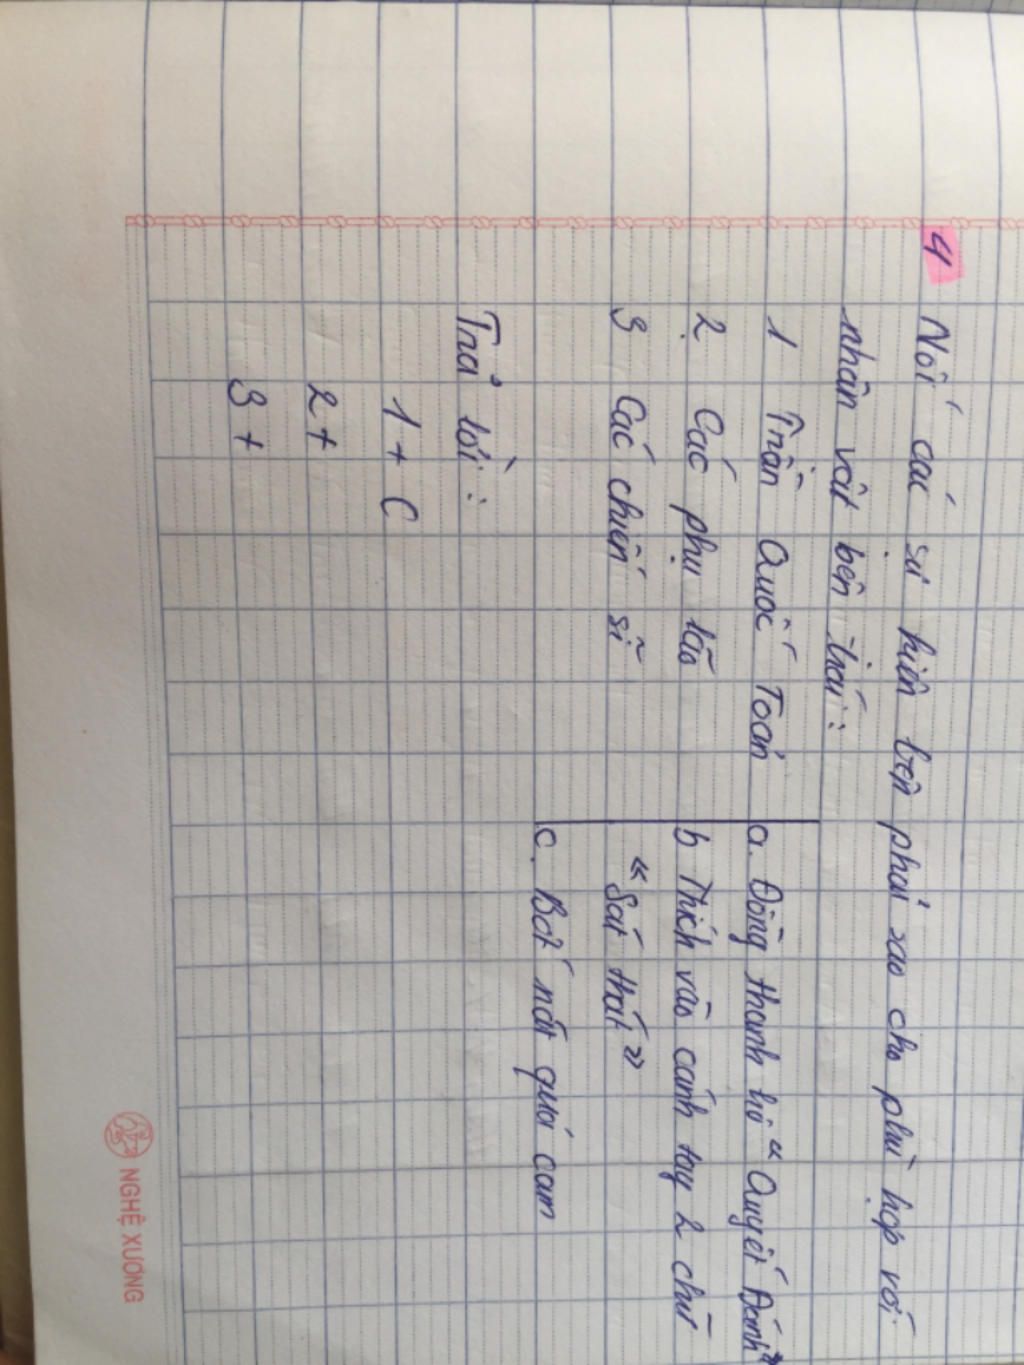 4 Nối các sự kiện bên phải sao cho phù hợp với
nhân vật bên trái:
1 Trần Quốc Toản
a. Đồng thanh hô "Quyết Đánh"
2. Các phụ lão
b Thích vào cánh tay 2 chữ
3 Các chiến sĩ
"Sát thát"
c. Bóp nát quả cam
Trả lời:
1 + C
2 +
3 +
NGHỆ XƯƠNG